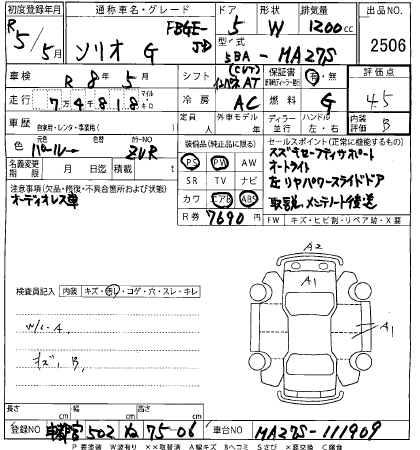 初度登録年月 通称車名・グレード ドア 形状 排気量 出品NO.
R 5/5月 ソリオ G 5 W 1200cc 2506
型式 5BA-MA27S
車検 R 8年5月 シフト インパネAT (CVT) 保証書 有・無 評価点
走行 7万4千818 マイル キロ 冷房 AC 燃料 G 4.5
車歴 自家用・レンタ・事業用( ) 定員 人 外車モデル 年 ディーラー 並行 ハンドル 左・右 内装 B
色 パール→ カラーNO ZVR 装備品(純正品に限る) セールスポイント(正常に機能するもの)
名義変更期限 月 日 積載 t PS PW AW スズキセーフティサポート
注意事項(欠品・修復・不具合箇所および状態) SR TV ナビ オートライト
オーディオレス車 カワ エアB ABS 左リヤパワースライドドア
R券 7690円 取説、メンテノート後送
FW キズ・ヒビ割・リペア跡・X要
検査員記入 内装 キズ・汚レ・コゲ・穴・スレ・キレ
A2
A1
A1
W/L.A
キズ、B
長さ cm 幅 cm 高さ cm
登録NO 502 ぬ 75-06 車台NO MA27S-111909
P要塗装 W波有り ××取替済 A線キズ Bヘコミ Sさび ×要交換 C腐食